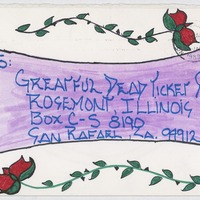 S:
GREATFUL DEAD TICKET S
ROSEMONT, ILLINOIS
BOX C-S 8190
SAN RAFAEL, CA. 99912